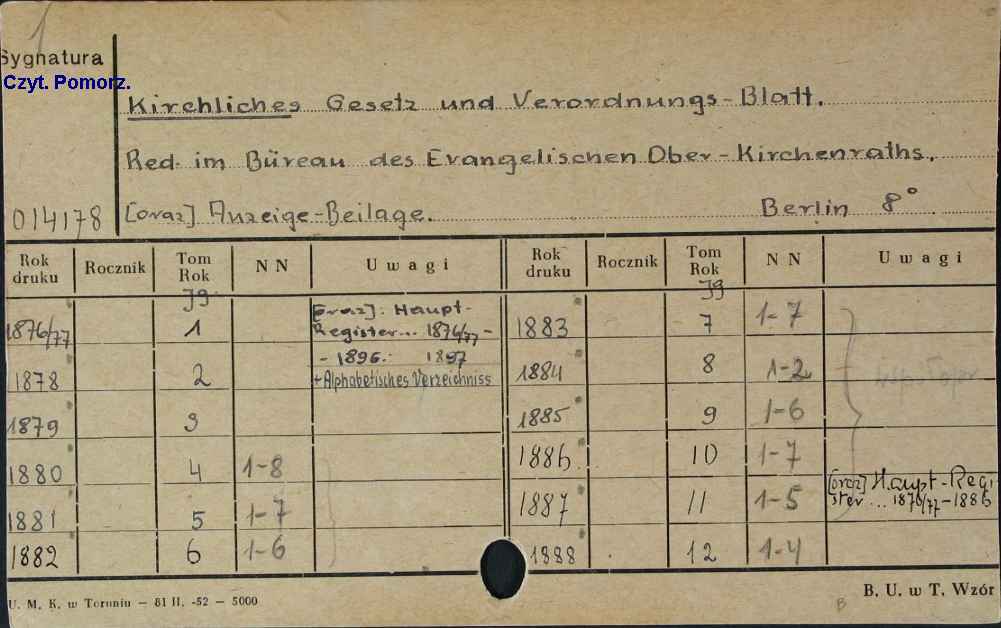 Sygnatura
Czyt. Pomorz.
Kirchliches Gesetz und Verordnungs-Blatt.
Red. im Büreau des Evangelischen Ober-Kirchenraths.
014178 [oraz] Anzeige-Beilage. Berlin 8°
Rok druku Rocznik Tom Rok N N Uwagi Rok druku Rocznik Tom Rok N N Uwagi
Jg Jg
1876/77 1 [oraz]: Haupt-
Register... 1876/77 -
- 1896. 1897
1883 7 1-7
1878 2 + Alphabetisches Verzeichniss 1884 8 1-2
1879 3 1885 9 1-6
1880 4 1-8 1886 10 1-7
1881 5 1-7 1887 11 1-5 [oraz] Haupt-Regi
ster ... 1876/77-1886
1882 6 1-6 1888 12 1-4
U. M. K. w Toruniu – 81 II. -52 – 5000
B
B. U. w T. Wzór